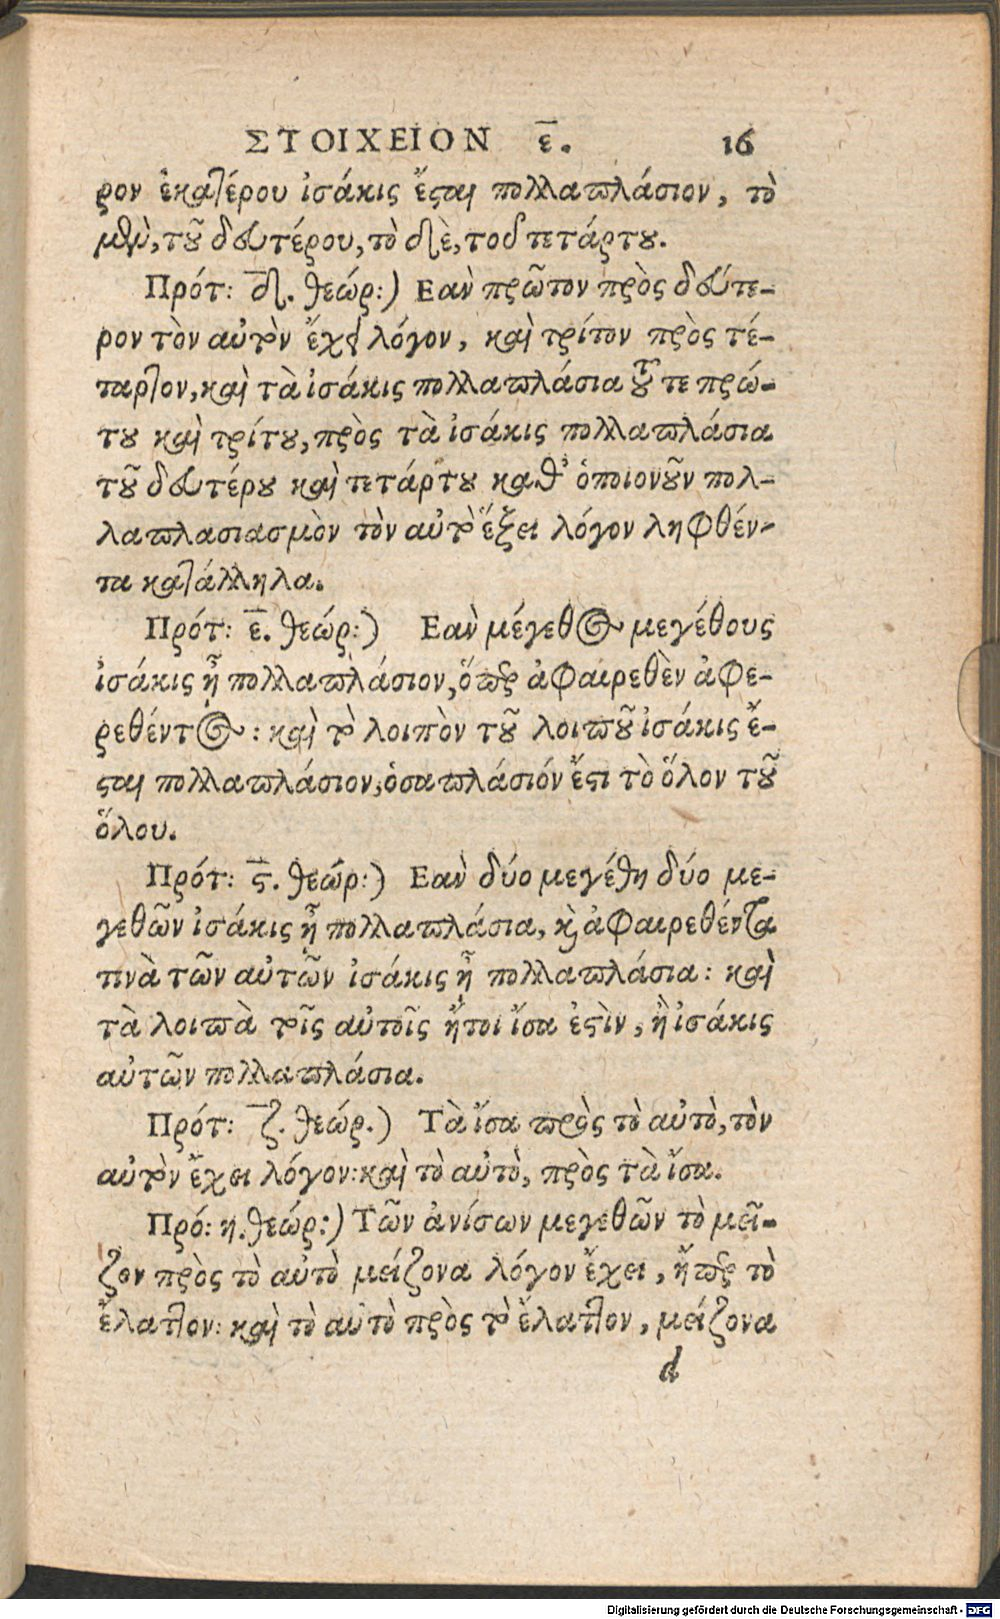 ΣΤΟΙΧΕΙΟΝ ε̄. 16
ρον ἑκατέρου ἰσάκις ἔσται πολλαπλάσιον, τὸ
μὲν, τοῦ δευτέρου, τὸ δὲ, τοῦ τετάρτου.
Πρότ: δ̄. θεώρ:) Εαν πρῶτον πρὸς δεύτε-
ρον τὸν αὐτὸν ἔχῃ λόγον, καὶ τρίτον πρὸς τέ-
ταρτον, καὶ τὰ ἰσάκις πολλαπλάσια τοῦ τε πρώ-
του καὶ τρίτου, πρὸς τὰ ἰσάκις πολλαπλάσια
τοῦ δευτέρου καὶ τετάρτου καθ' ὁποιονοῦν πολ-
λαπλασιασμὸν τὸν αὐτὸ ἕξει λόγον ληφθέν-
τα κατάλληλα.
Πρότ: ε̄. θεώρ:) Εὰν μέγεθος μεγέθους
ἰσάκις ᾖ πολλαπλάσιον, ὅπερ ἀφαιρεθὲν ἀφε-
ρεθέντος: καὶ τὸ λοιπὸν τοῦ λοιποῦ ἰσάκις ἔ-
σται πολλαπλάσιον, ὁσαπλάσιόν ἔστι τὸ ὅλον τοῦ
ὅλου.
Πρότ: ϛ̄. θεώρ:) Εὰν δύο μεγέθη δύο με-
γεθῶν ἰσάκις ᾖ πολλαπλάσια, καὶ ἀφαιρεθέντα
τινὰ τῶν αὐτῶν ἰσάκις ᾖ πολλαπλάσια: καὶ
τὰ λοιπὰ τοῖς αὐτοῖς ἤτοι ἴσα ἐστὶν, ἢ ἰσάκις
αὐτῶν πολλαπλάσια.
Πρότ: ζ̄. θεώρ.) Τὰ ἴσα πρὸς τὸ αὐτὸ, τὸν
αὐτὸν ἔχει λόγον: καὶ τὸ αὐτὸ, πρὸς τὰ ἴσα.
Πρό: η. θεώρ:) Τῶν ἀνίσων μεγεθῶν τὸ μεῖ-
ζον πρὸς τὸ αὐτὸ μείζονα λόγον ἔχει, ἤπερ τὸ
ἔλαττον: καὶ τὸ αὐτὸ πρὸς τὸ ἔλαττον, μείζονα
d
Digitalisierung gefördert durch die Deutsche Forschungsgemeinschaft - DFG